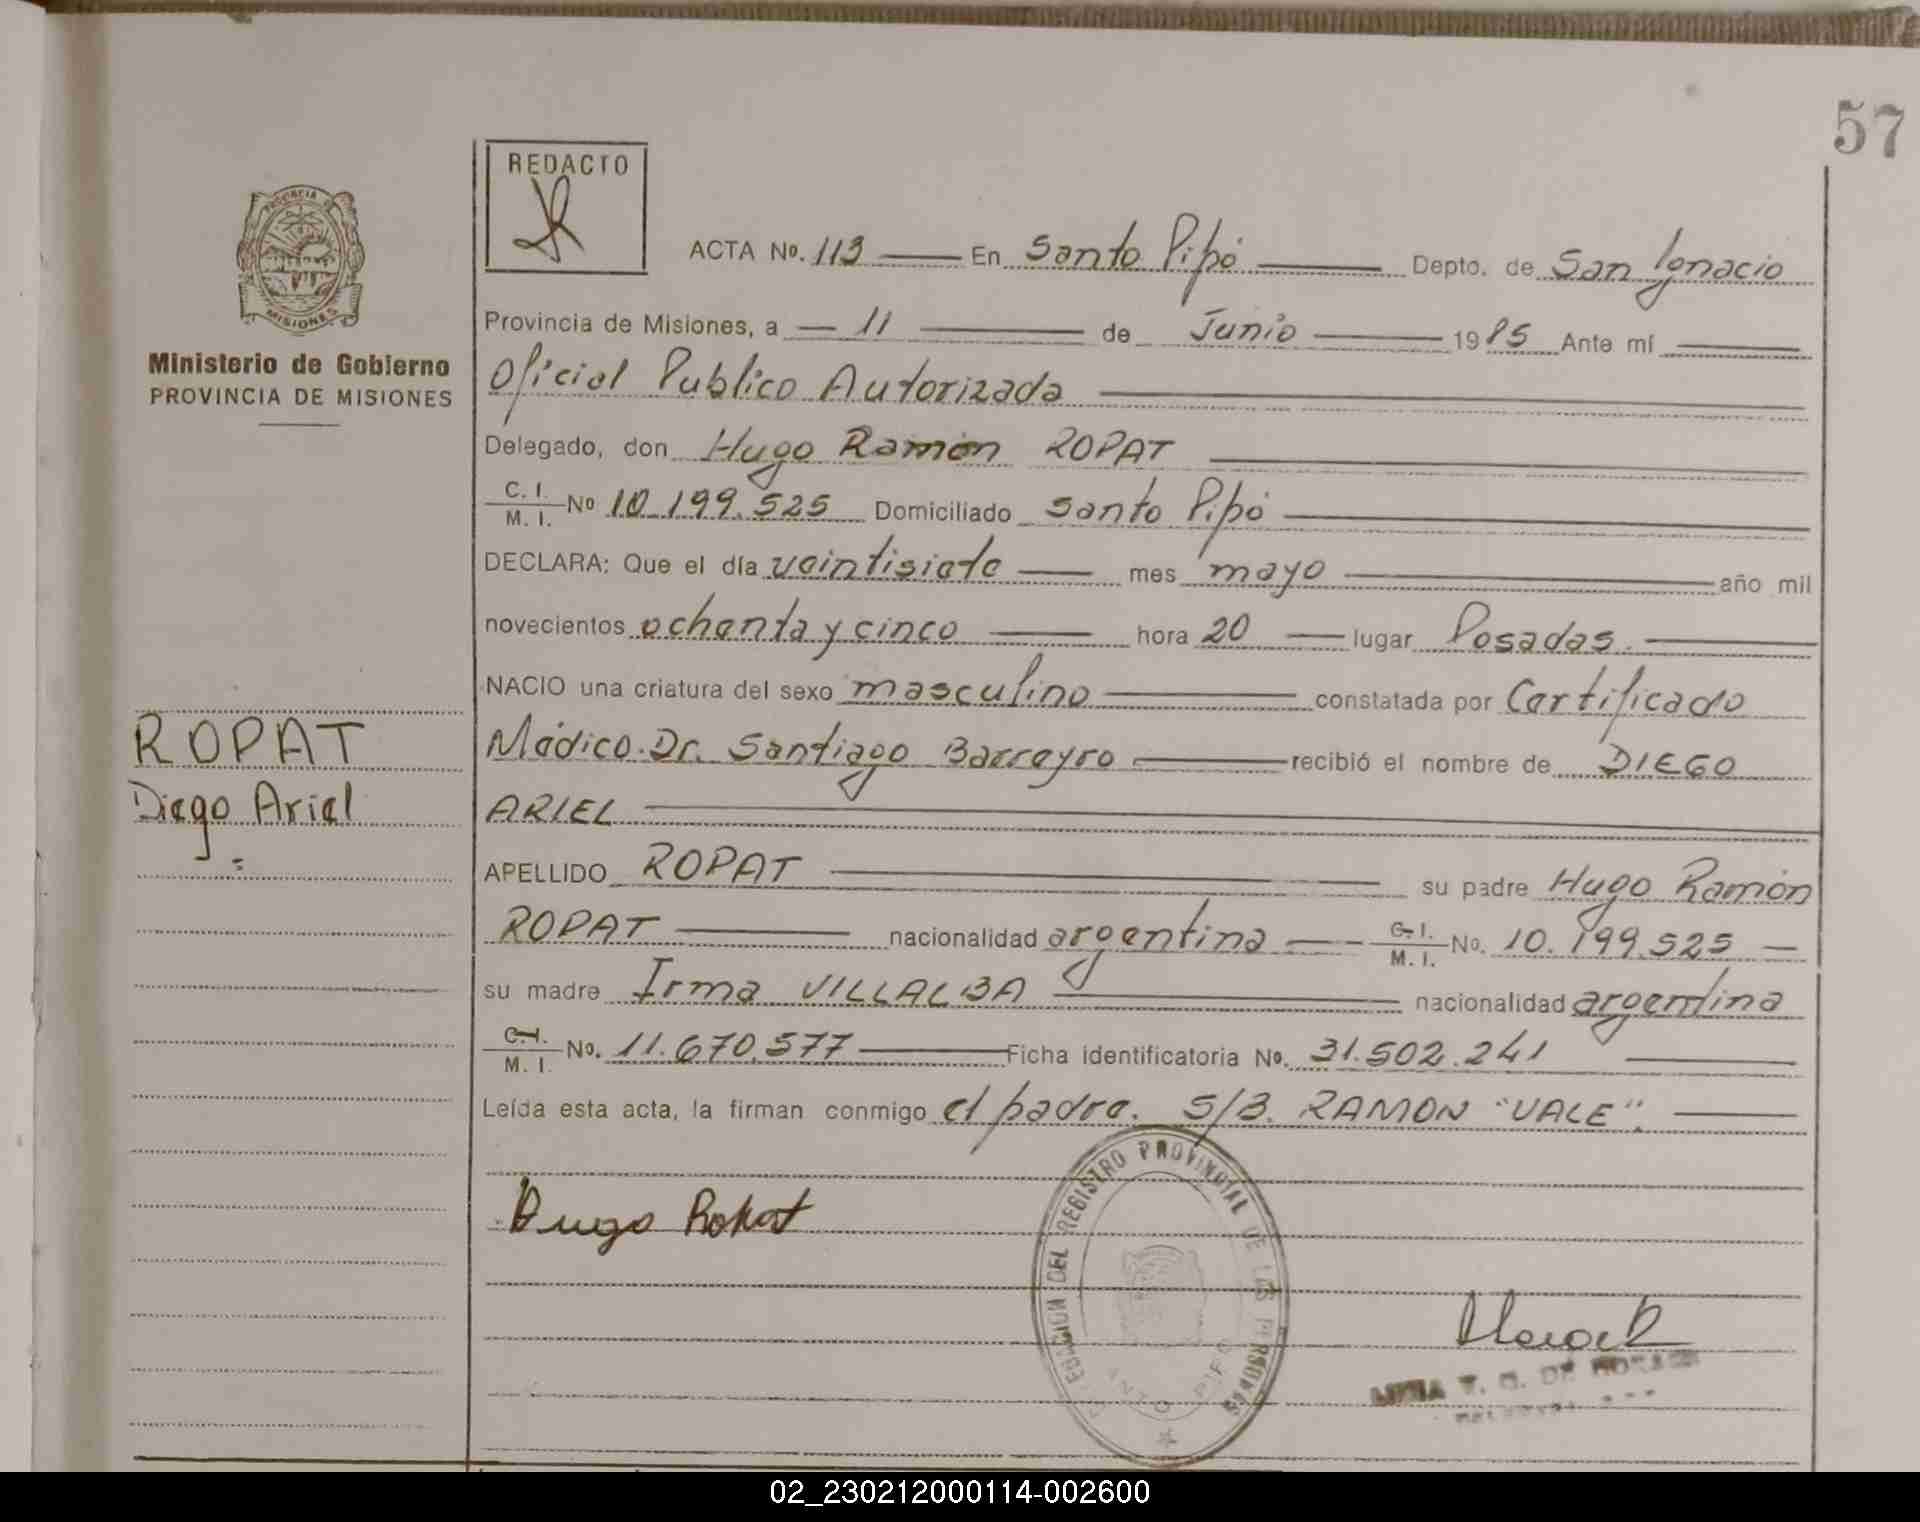 57
REDACTO
PROVINCIA DE
MISIONES
Ministerio de Gobierno
PROVINCIA DE MISIONES
ACTA No. 113 En Santo Pipó Depto. de San Ignacio
Provincia de Misiones, a 11 de Junio 1985 Ante mí
Oficial Publico Autorizada
Delegado, don Hugo Ramón ROPAT
C. I. / M. I. No 10.199.525 Domiciliado Santo Pipó
DECLARA: Que el día veintisiete mes mayo año mil
novecientos ochenta y cinco hora 20 lugar Posadas.
NACIO una criatura del sexo masculino constatada por Certificado
Médico. Dr. Santiago Barreyro recibió el nombre de DIEGO
ARIEL
ROPAT
Diego Ariel
APELLIDO ROPAT su padre Hugo Ramón
ROPAT nacionalidad argentina C. I. / M. I. No. 10.199.525
su madre Irma VILLALBA nacionalidad argentina
C. I. / M. I. No. 11.670.577 Ficha identificatoria No. 31.502.241
Leída esta acta, la firman conmigo el padre. S/B. RAMON "VALE".
Hugo Ropat
DELEGACION DEL REGISTRO PROVINCIAL DE LAS PERSONAS
SANTO PIPO
02_230212000114-002600